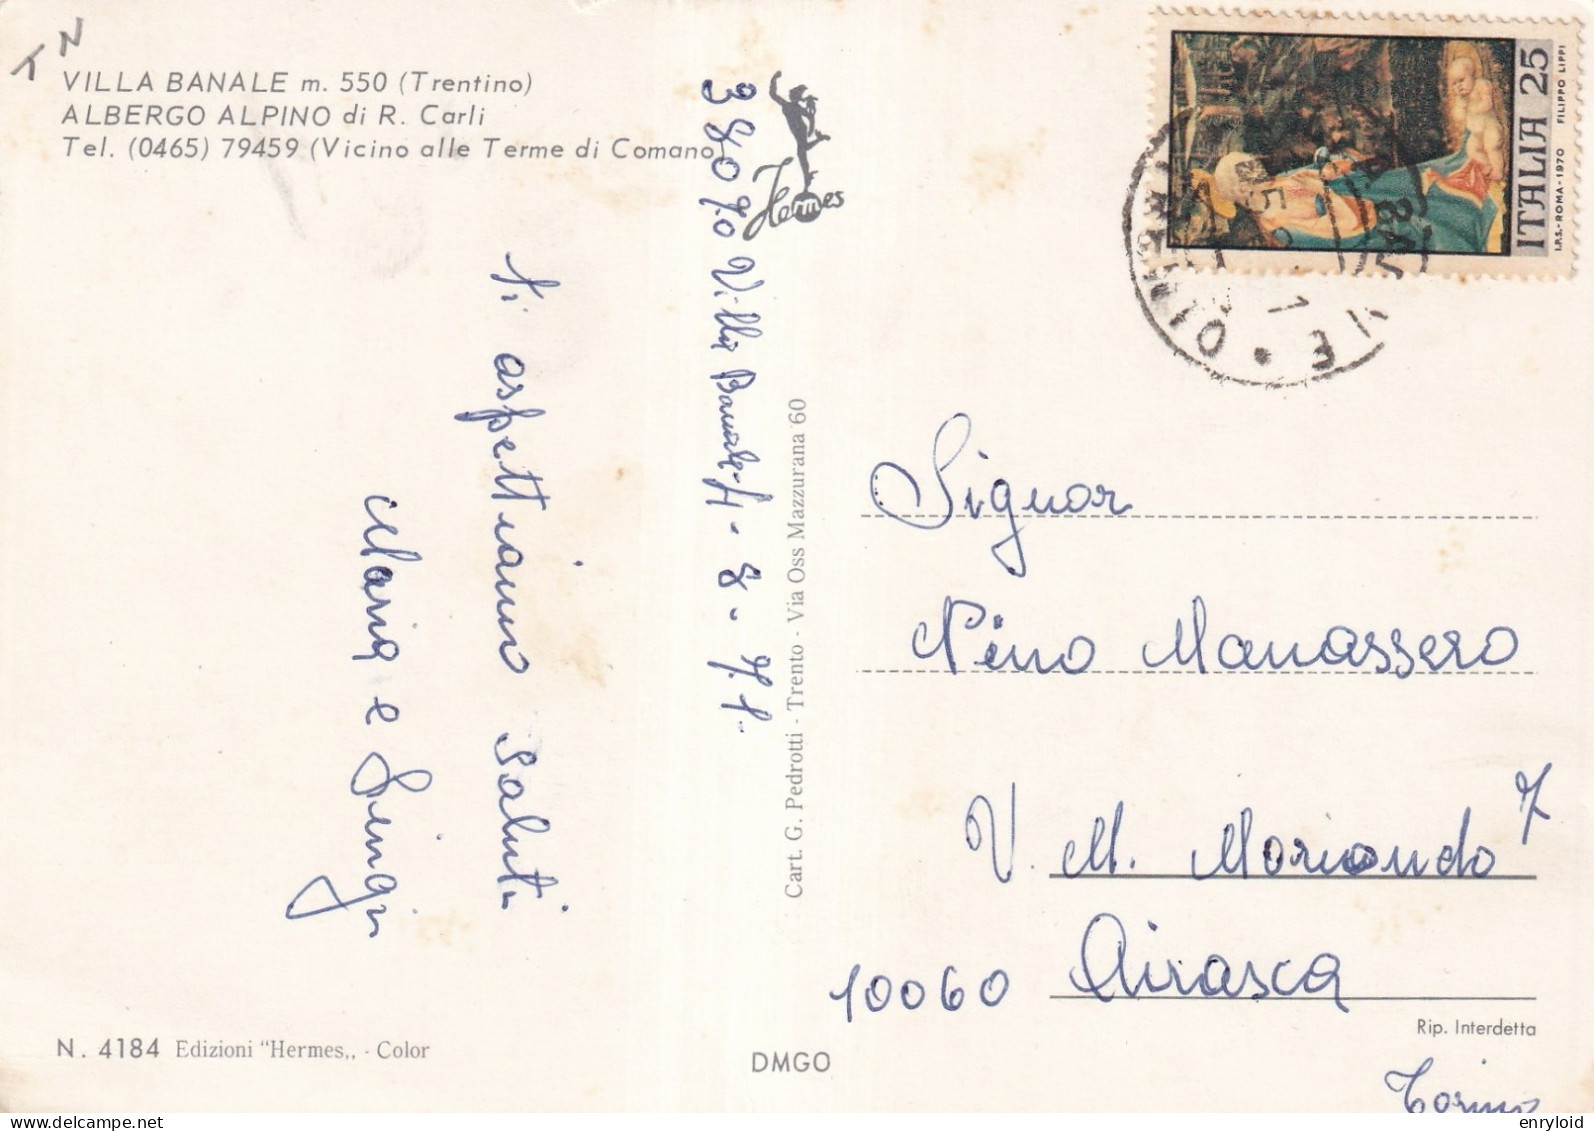 TN
VILLA BANALE m. 550 (Trentino)
ALBERGO ALPINO di R. Carli
Tel. (0465) 79459 (Vicino alle Terme di Comano)
Hermes
38070 Villa Banale
8 - 71
Vi aspettiamo saluti
Maria e
Cart. G. Pedrotti - Trento - Via Oss Mazzurana 60
ITALIA 25
I.P.S. - ROMA - 1970 FILIPPO LIPPI
Signor
Pino Manassero
V. M. Moriondo 7
10060 Airasca
Torino
Rip. Interdetta
N. 4184 Edizioni "Hermes,, - Color
DMGO
enryloid